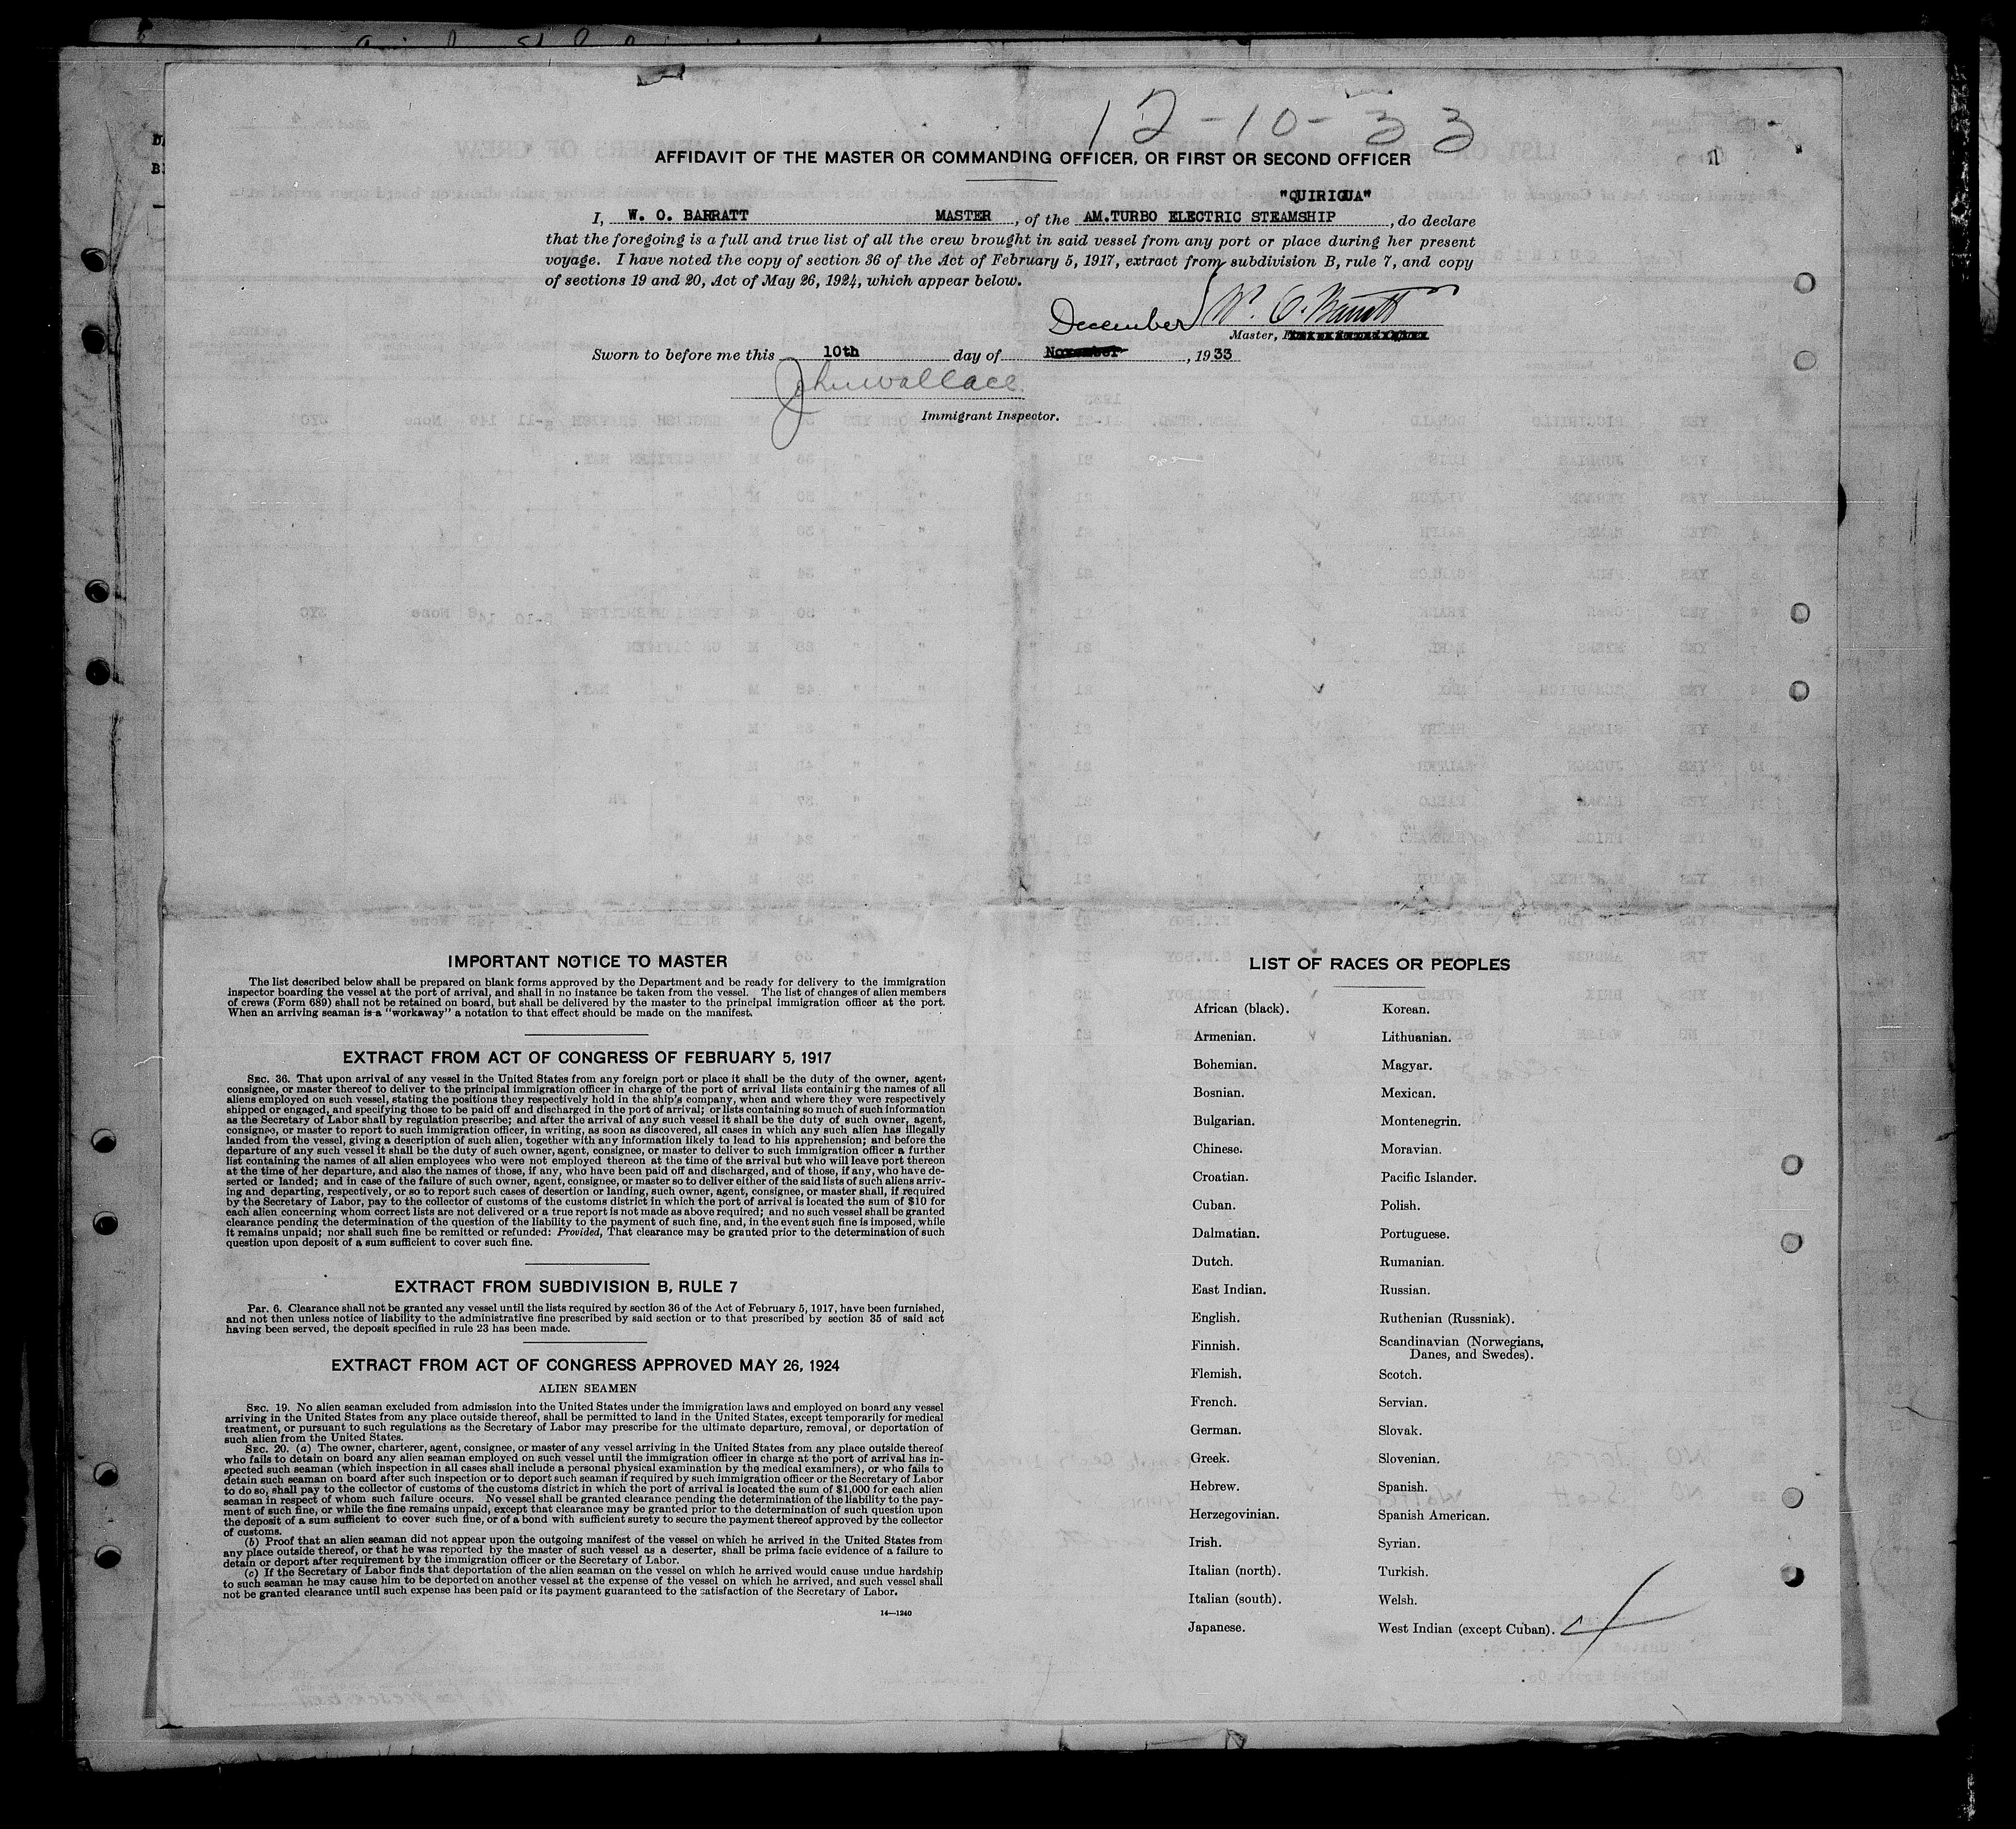 12-10-33
AFFIDAVIT OF THE MASTER OR COMMANDING OFFICER, OR FIRST OR SECOND OFFICER
"QUIRIGUA"
I, W. O. BARRATT MASTER, of the AM.TURBO ELECTRIC STEAMSHIP, do declare
that the foregoing is a full and true list of all the crew brought in said vessel from any port or place during her present
voyage. I have noted the copy of section 36 of the Act of February 5, 1917, extract from subdivision B, rule 7, and copy
of sections 19 and 20, Act of May 26, 1924, which appear below.
December W. O. Barratt
Master,
Sworn to before me this 10th day of November, 1933
John Wallace
Immigrant Inspector.
IMPORTANT NOTICE TO MASTER
The list described below shall be prepared on blank forms approved by the Department and be ready for delivery to the immigration
inspector boarding the vessel at the port of arrival, and shall in no instance be taken from the vessel. The list of changes of alien members
of crews (Form 689) shall not be retained on board, but shall be delivered by the master to the principal immigration officer at the port.
When an arriving seaman is a "workaway" a notation to that effect should be made on the manifest.
EXTRACT FROM ACT OF CONGRESS OF FEBRUARY 5, 1917
SEC. 36. That upon arrival of any vessel in the United States from any foreign port or place it shall be the duty of the owner, agent,
consignee, or master thereof to deliver to the principal immigration officer in charge of the port of arrival lists containing the names of all
aliens employed on such vessel, stating the positions they respectively hold in the ship's company, when and where they were respectively
shipped or engaged, and specifying those to be paid off and discharged in the port of arrival; or lists containing so much of such information
as the Secretary of Labor shall by regulation prescribe; and after the arrival of any such vessel it shall be the duty of such owner, agent,
consignee, or master to report to such immigration officer, in writing, as soon as discovered, all cases in which any such alien has illegally
landed from the vessel, giving a description of such alien, together with any information likely to lead to his apprehension; and before the
departure of any such vessel it shall be the duty of such owner, agent, consignee, or master to deliver to such immigration officer a further
list containing the names of all alien employees who were not employed thereon at the time of the arrival but who will leave port thereon
at the time of her departure, and also the names of those, if any, who have been paid off and discharged, and of those, if any, who have de-
serted or landed; and in case of the failure of such owner, agent, consignee, or master so to deliver either of the said lists of such aliens arriv-
ing and departing, respectively, or so to report such cases of desertion or landing, such owner, agent, consignee, or master shall, if required
by the Secretary of Labor, pay to the collector of customs of the customs district in which the port of arrival is located the sum of $10 for
each alien concerning whom correct lists are not delivered or a true report is not made as above required; and no such vessel shall be granted
clearance pending the determination of the question of the liability to the payment of such fine, and, in the event such fine is imposed, while
it remains unpaid; nor shall such fine be remitted or refunded: Provided, That clearance may be granted prior to the determination of such
question upon deposit of a sum sufficient to cover such fine.
EXTRACT FROM SUBDIVISION B, RULE 7
Par. 6. Clearance shall not be granted any vessel until the lists required by section 36 of the Act of February 5, 1917, have been furnished,
and not then unless notice of liability to the administrative fine prescribed by said section or to that prescribed by section 35 of said act
having been served, the deposit specified in rule 23 has been made.
EXTRACT FROM ACT OF CONGRESS APPROVED MAY 26, 1924
ALIEN SEAMEN
SEC. 19. No alien seaman excluded from admission into the United States under the immigration laws and employed on board any vessel
arriving in the United States from any place outside thereof, shall be permitted to land in the United States, except temporarily for medical
treatment, or pursuant to such regulations as the Secretary of Labor may prescribe for the ultimate departure, removal, or deportation of
such alien from the United States.
SEC. 20. (a) The owner, charterer, agent, consignee, or master of any vessel arriving in the United States from any place outside thereof
who fails to detain on board any alien seaman employed on such vessel until the immigration officer in charge at the port of arrival has in-
spected such seaman (which inspection in all cases shall include a personal physical examination by the medical examiners), or who fails to
detain such seaman on board after such inspection or to deport such seaman if required by such immigration officer or the Secretary of Labor
to do so, shall pay to the collector of customs of the customs district in which the port of arrival is located the sum of $1,000 for each alien
seaman in respect of whom such failure occurs. No vessel shall be granted clearance pending the determination of the liability to the pay-
ment of such fine, or while the fine remains unpaid, except that clearance may be granted prior to the determination of such question upon
the deposit of a sum sufficient to cover such fine, or of a bond with sufficient surety to secure the payment thereof approved by the collector
of customs.
(b) Proof that an alien seaman did not appear upon the outgoing manifest of the vessel on which he arrived in the United States from
any place outside thereof, or that he was reported by the master of such vessel as a deserter, shall be prima facie evidence of a failure to
detain or deport after requirement by the immigration officer or the Secretary of Labor.
(c) If the Secretary of Labor finds that deportation of the alien seaman on the vessel on which he arrived would cause undue hardship
to such seaman he may cause him to be deported on another vessel at the expense of the vessel on which he arrived, and such vessel shall
not be granted clearance until such expense has been paid or its payment guaranteed to the satisfaction of the Secretary of Labor.
14—1240
LIST OF RACES OR PEOPLES
African (black).
Armenian.
Bohemian.
Bosnian.
Bulgarian.
Chinese.
Croatian.
Cuban.
Dalmatian.
Dutch.
East Indian.
English.
Finnish.
Flemish.
French.
German.
Greek.
Hebrew.
Herzegovinian.
Irish.
Italian (north).
Italian (south).
Japanese.
Korean.
Lithuanian.
Magyar.
Mexican.
Montenegrin.
Moravian.
Pacific Islander.
Polish.
Portuguese.
Rumanian.
Russian.
Ruthenian (Russniak).
Scandinavian (Norwegians,
Danes, and Swedes).
Scotch.
Servian.
Slovak.
Slovenian.
Spanish.
Spanish American.
Syrian.
Turkish.
Welsh.
West Indian (except Cuban).